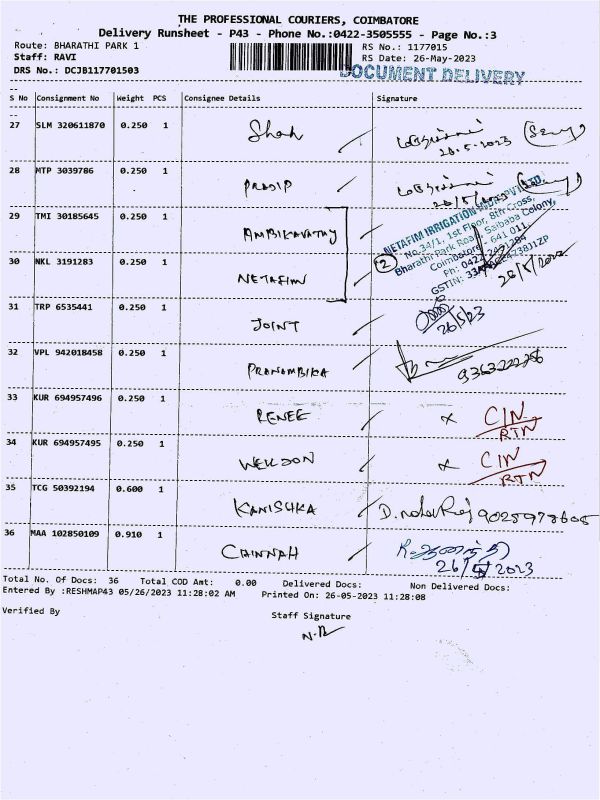 THE PROFESSIONAL COURIERS, COIMBATORE
Delivery Runsheet - P43 - Phone No.:0422-3505555 - Page No.:3
Route: BHARATHI PARK 1 RS No.: 1177015
Staff: RAVI RS Date: 26-May-2023
DRS No.: DCJB117701503
DOCUMENT DELIVERY
S No Consignment No Weight PCS Consignee Details Signature
27 SLM 320611870 0.250 1 Shah
28 MTP 3039786 0.250 1 PRADIP
29 TMI 30185645 0.250 1 AMBIKAVATHY
NETAFIM IRRIGATION INDIA PVT. LTD.
No.34/1, 1st Floor, 8th Cross,
Bharathi Park Road, Saibaba Colony,
Coimbatore - 641 011
30 NKL 3191283 0.250 1 NETAFIM 2
31 TRP 6535441 0.250 1 JOINT 26/5/23
32 VPL 942018458 0.250 1 PRANAMBIKA
33 KUR 694957496 0.250 1 RENEE x C/N RTN
34 KUR 694957495 0.250 1 WELLDON x C/N RTN
35 TCG 50392194 0.600 1 KANISHKA
36 MAA 102850109 0.910 1 CHINNAH 26/5/2023
Total No. Of Docs: 36 Total COD Amt: 0.00 Delivered Docs: Non Delivered Docs:
Entered By :RESHMAP43 05/26/2023 11:28:02 AM Printed On: 26-05-2023 11:28:08
Verified By Staff Signature
N.R